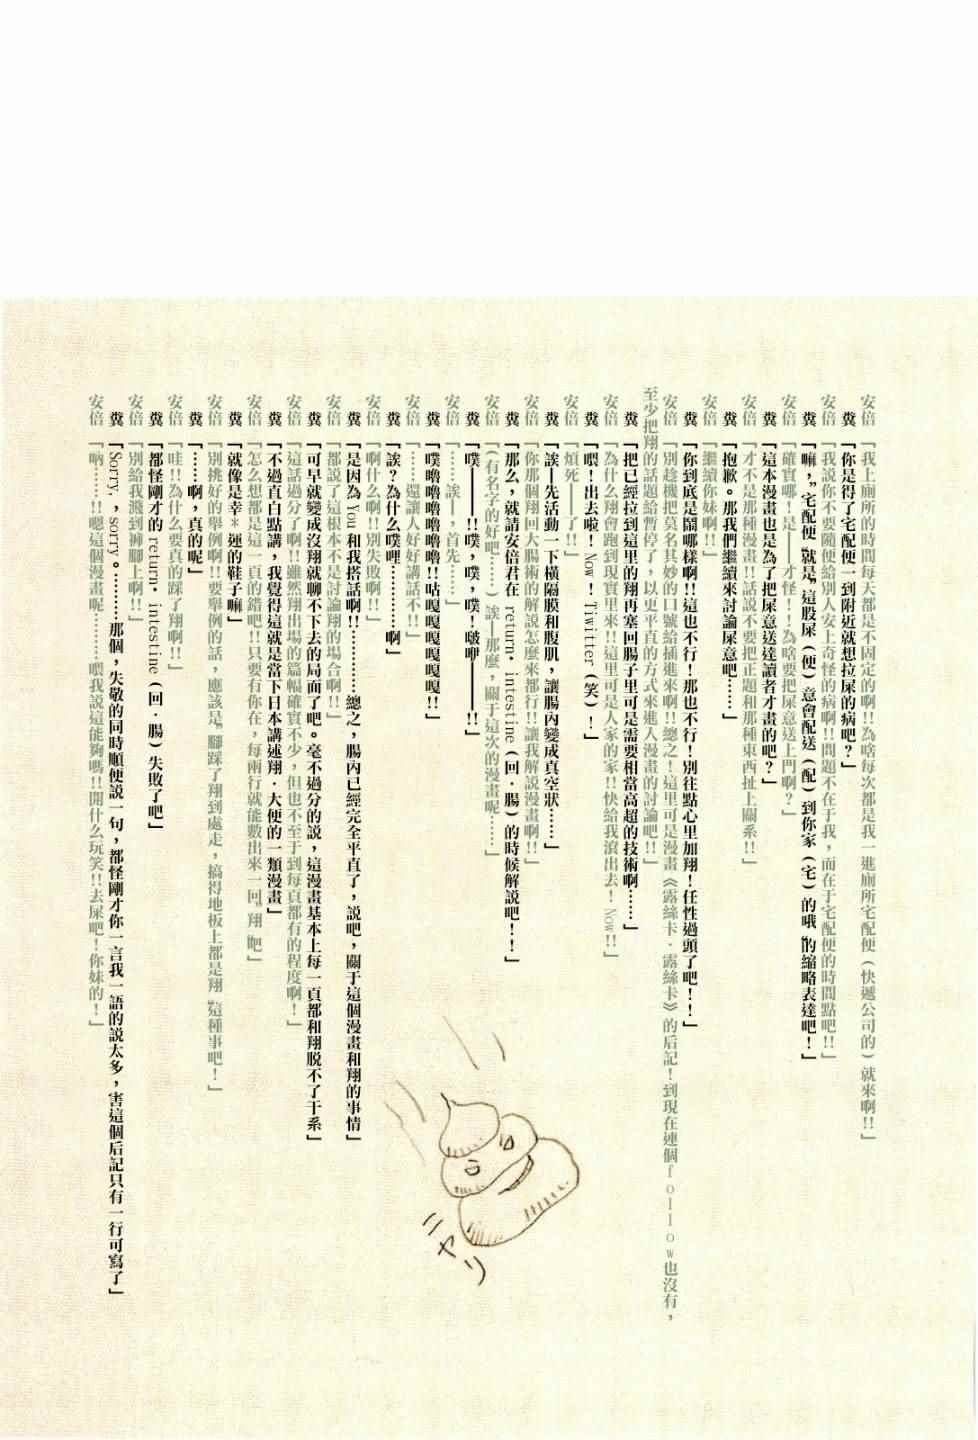 安倍「我上廁所的時間每天都是不固定的啊!!為啥每次都是我一進廁所宅配便（快遞公司的）就來啊!!」
糞「你是得了宅配便一到附近就想拉屎的病吧？」
安倍「我説你不要隨便給別人安上奇怪的病啊!!問題不在于我，而在于宅配便的時間點吧!!」
糞「嘛，"宅配便"就是"這股屎（便）意會配送（配）到你家（宅）的哦"的縮略表達吧！」
安倍「確實哪！是——才怪！！為啥要把屎意送上門啊？」
糞「這本漫畫也是為了把屎意送達讀者才畫的吧？」
安倍「才不是那種漫畫!!話説不要把正題和那種東西扯上關系!!」
糞「抱歉。那我們繼續來討論屎意吧……」
安倍「繼續你妹啊!!」
糞「你到底是鬧哪樣啊!!這也不行！那也不行！別往點心里加翔！任性過頭了吧！！」
安倍「別趁機把莫名其妙的口號給插進來啊!!總之！這里可是漫畫《露絲卡·露絲卡》的后記！到現在連個follow也沒有，
至少把翔的話題給暫停了，以更平直的方式來進入漫畫的討論吧!!」
糞「把已經拉到這里的翔再塞回腸子里可是需要相當高超的技術啊……」
安倍「為什么翔會跑到現實里來!!這里可是人家的家!!快給我滾出去！Now!!」
糞「喂！出去啦！Now！Tiwitter（笑）！」
安倍「煩死——了!!」
糞「誒—先活動一下橫隔膜和腹肌，讓腸內變成真空狀……」
安倍「你那個翔回大腸術的解説怎麼來都行!!讓我解説漫畫啊!!」
糞「那么，就請安倍君在 return．intestine（回·腸）的時候解説吧！！」
安倍「（有名字的好吧……）誒—那麼，關于這次的漫畫呢……」
糞「噗——!!噗，噗，噗！啵咿———!!」
安倍「……誒—，首先……」
糞「噗嚕嚕嚕嚕嚕嚕!!咕嘎嘎嘎嘎嘎嘎!!」
安倍「……還讓人好好講話不!!」
糞「誒？為什么噗哩…………啊」
安倍「啊什么啊!!別失敗啊!!」
糞「是因為You和我搭話啊!!…………總之，腸內已經完全平直了，説吧，關于這個漫畫和翔的事情」
安倍「都説了這根本不是討論翔的場合啊!!」
糞「可早就變成沒翔就聊不下去的局面了吧。毫不過分的説，這漫畫基本上每一頁都和翔脱不了干系」
安倍「這話過分了啊!!雖然翔出場的篇幅確實不少，但也不至于到每頁都有的程度啊！」
糞「不過直白點講，我覺得這就是當下日本講述翔·大便的一類漫畫」
安倍「怎么想都是這一頁的錯吧!!只要有你在，每兩行就能數出來一回"翔"吧」
糞「就像是幸＊運的鞋子嘛」
安倍「別挑好的舉例啊!!要舉例的話，應該是"腳踩了翔到處走，搞得地板上都是翔"這種事吧！」
糞「……啊，真的呢」
安倍「哇!!為什么要真的踩了翔啊!!」
糞「都怪剛才的 return．intestine（回·腸）失敗了吧」
安倍「別給我濺到褲腳上啊!!」
糞「Sorry，，sorry。…………那個，失敬的同時順便説一句，都怪剛才你一言我一語的説太多，害這個后記只有一行可寫了」
安倍「吶……!!嗯這個漫畫呢………喂我説這能夠嗎!!開什么玩笑!!去屎吧！你妹的！」
ニヤリ